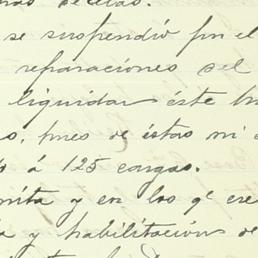 se suspendió por el
reparaciones del
liquidar éste
pues de éstas mi
á 125 cargas.
y en los qe cre
y habilitación de